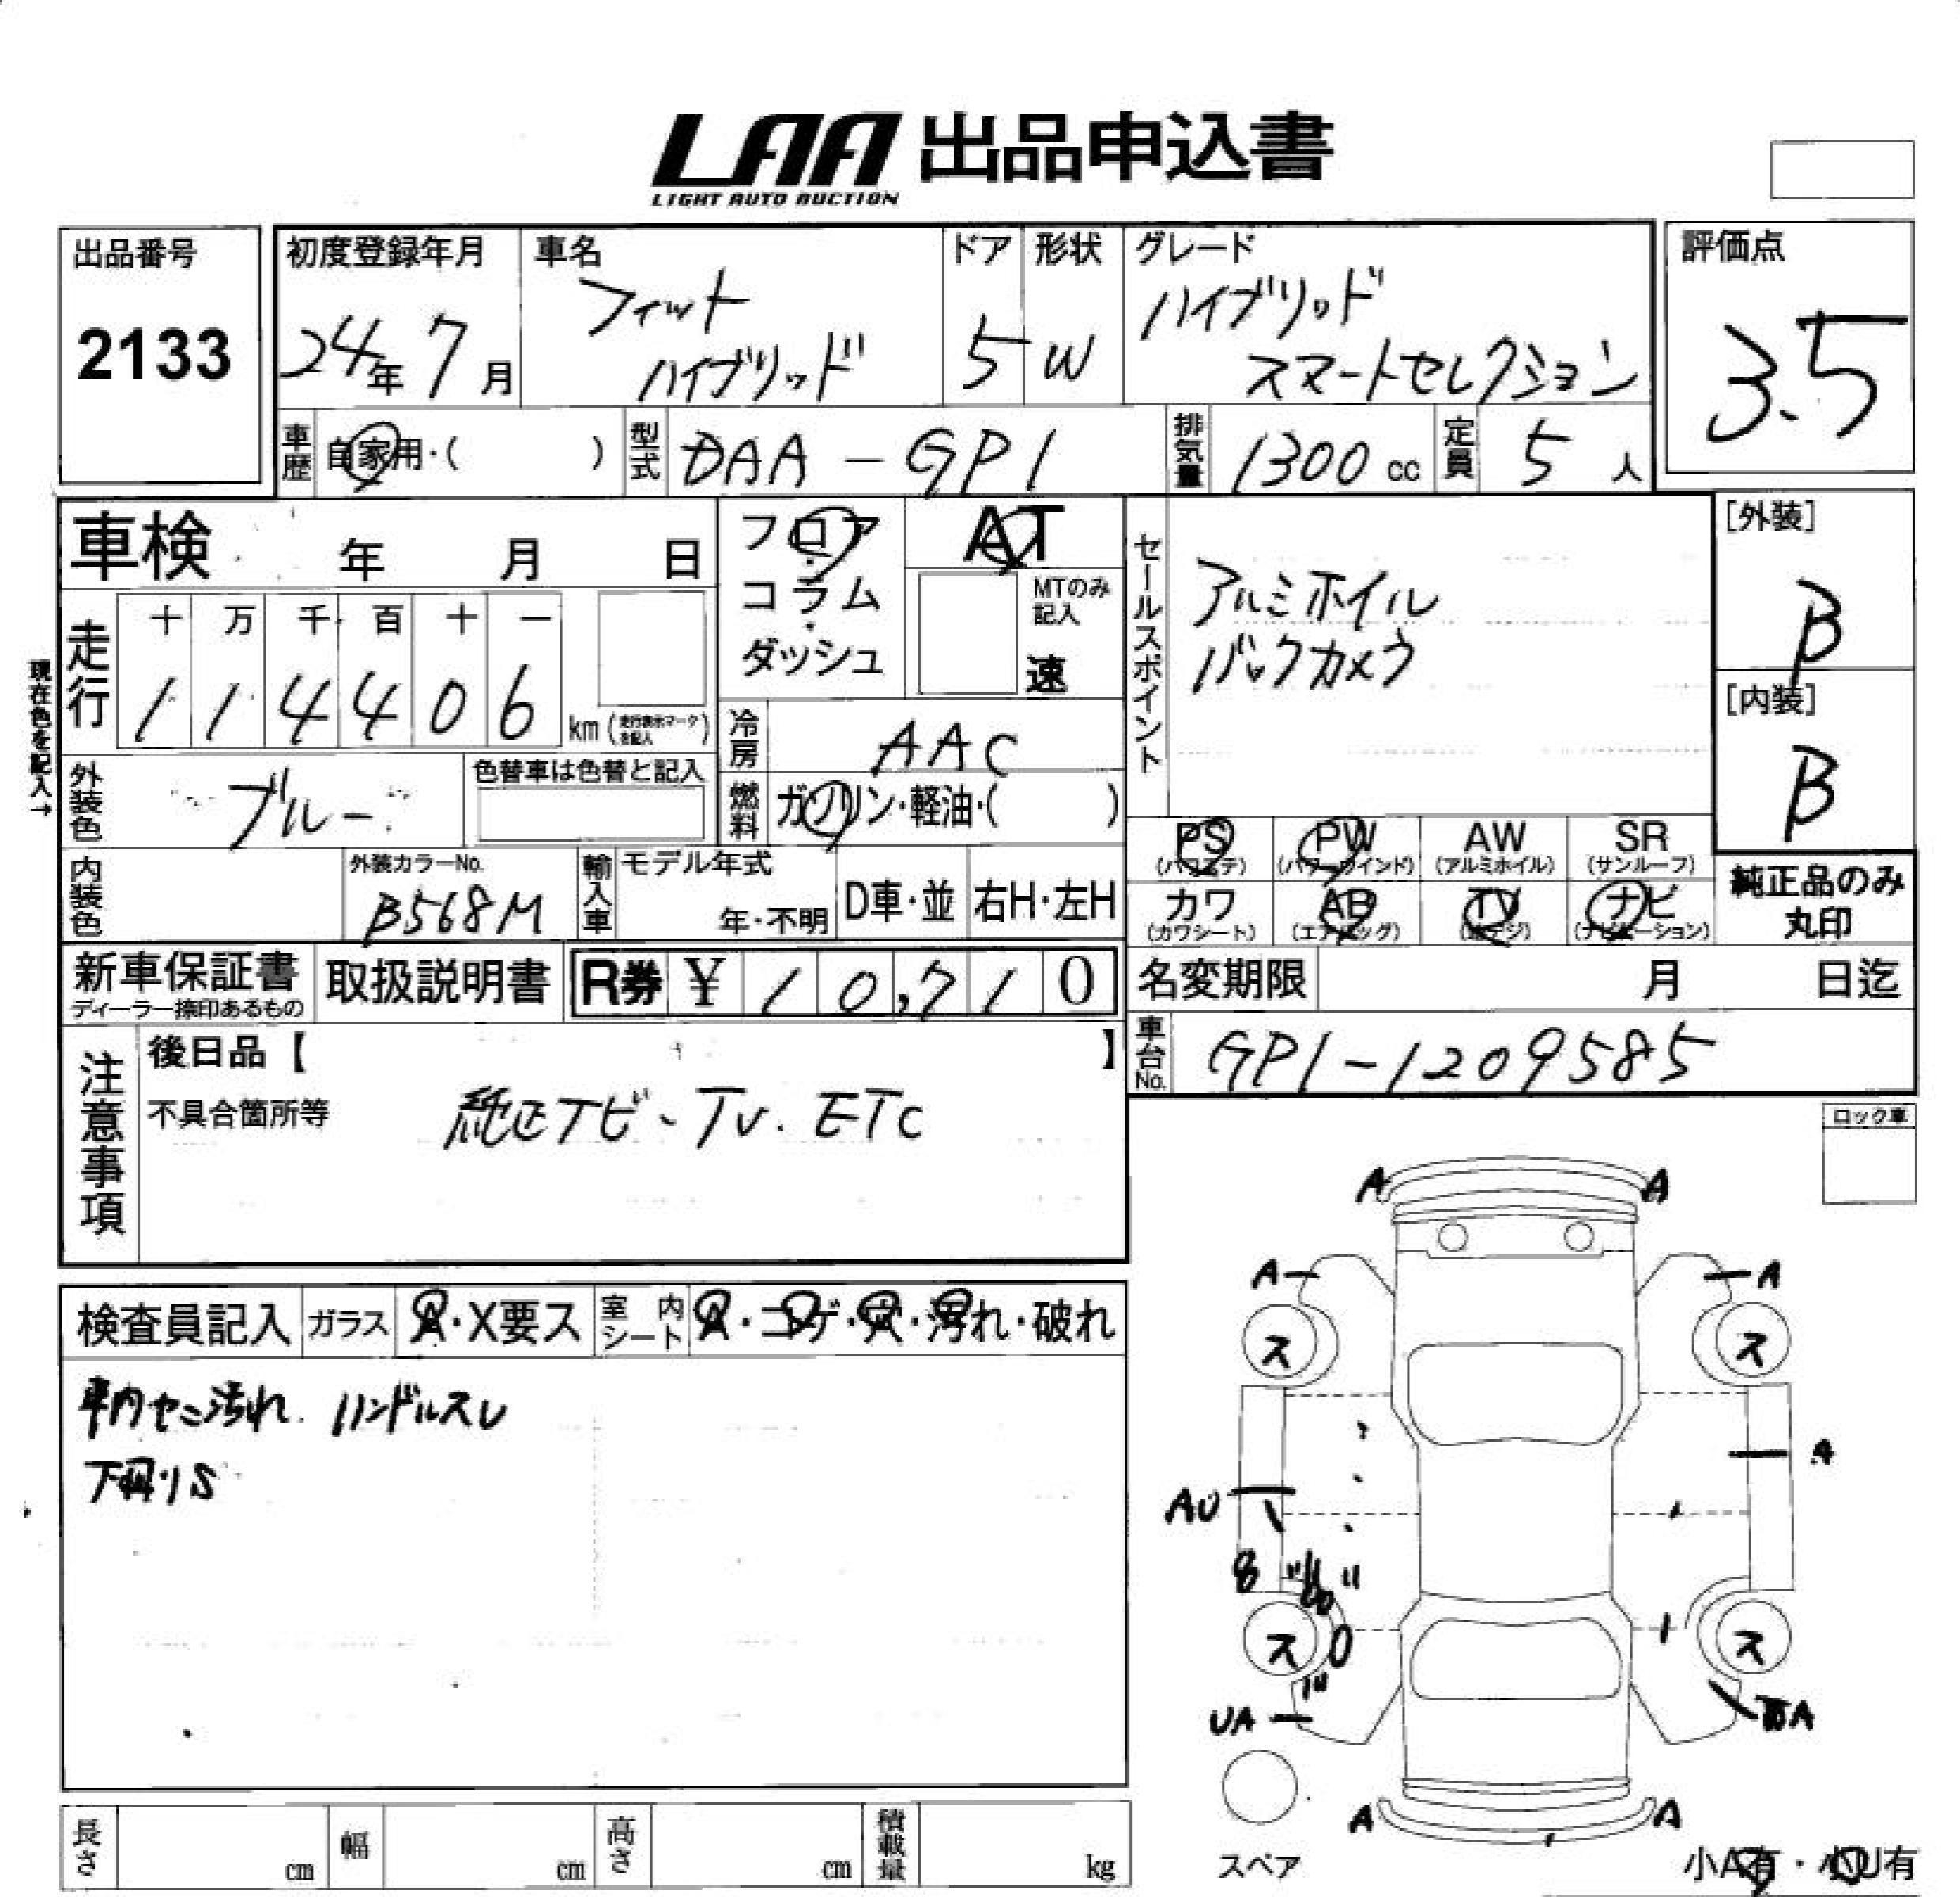 LAA 出品申込書
LIGHT AUTO AUCTION
出品番号
2133
初度登録年月
24年7月
車名
フィット
ハイブリッド
ドア
5
形状
W
グレード
ハイブリッド
スマートセレクション
評価点
3.5
車歴
自家用・( )
型式
DAA-GP1
排気量
1300 cc
定員
5人
車検 年 月 日
フロア
コラム
ダッシュ
AT
MTのみ
記入
速
セールスポイント
アルミホイル
バックカメラ
[外装]
B
[内装]
B
現在色を記入→
走行
十 万 千 百 十 一
1 1 4 4 0 6
km (走行表示マークを記入)
冷房
AAC
外装色
ブルー
色替車は色替と記入
燃料
ガソリン・軽油・( )
PS
(パワステ)
PW
(パワーウインド)
AW
(アルミホイル)
SR
(サンルーフ)
内装色
外装カラーNo.
B568M
輸入車
モデル年式
年・不明
D車・並
右H・左H
カワ
(カワシート)
AB
(エアバッグ)
TV
(地デジ)
ナビ
(ナビゲーション)
純正品のみ
丸印
新車保証書
ディーラー捺印あるもの
取扱説明書
R券 ¥ 10,710
名変期限 月 日迄
注意事項
後日品【 】
不具合箇所等
純正ナビ、TV. ETC
車台No.
GP1-1209585
ロック車
検査員記入
ガラス
A・X要ス
室内シート
A・コゲ・穴・汚れ・破れ
車内キズ汚れ. ハンドルスレ
下回りS
A A
A A
ス ス
A
AU
8
ス ス
UA
A A
スペア
小A有・小U有
長さ cm
幅 cm
高さ cm
積載量 kg